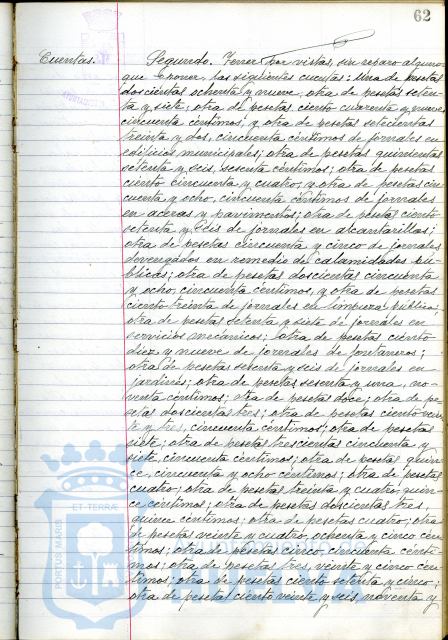 62
Cuentas. Segundo. Tener por vistas, sin reparo alguno
que oponer, las siguientes cuentas: Una de pesetas
doscientas ochenta y nueve, otra de pesetas seten-
ta y siete; otra de pesetas ciento cuarenta y nueve,
cincuenta céntimos; y otra de pesetas setecientas
treinta y dos, cincuenta céntimos de jornales en
edificios municipales; otra de pesetas quinientas
setenta y seis, sesenta céntimos; otra de pesetas
ciento cincuenta y cuatro; y otra de pesetas cin
cuenta y ocho, cincuenta céntimos de jornales
en aceras y pavimentos; otra de pesetas ciento
setenta y seis de jornales en alcantarillas;
otra de pesetas cincuenta y cinco de jornales
devengados en remedio de calamidades pú-
blicas; otra de pesetas doscientas cincuenta
y ocho, cincuenta céntimos, y otra de pesetas
ciento treinta de jornales en limpieza pública;
otra de pesetas setenta y siete de jornales en
servicios mecánicos; otra de pesetas ciento
diez y nueve de jornales de fontaneros;
otra de pesetas sesenta y seis de jornales en
jardines; otra de pesetas sesenta y una, no-
venta céntimos; otra de pesetas doce; otra de pe-
setas doscientas tres; otra de pesetas ciento vein-
te y tres, cincuenta céntimos; otra de pesetas
siete; otra de pesetas trescientas cincuenta y
siete, cincuenta céntimos; otra de pesetas quin-
ce, cincuenta y ocho céntimos; otra de pesetas
cuatro; otra de pesetas treinta y cuatro, quin-
ce céntimos; otra de pesetas doscientas tres,
quince céntimos; otra de pesetas cuatro; otra
de pesetas veinte y cuatro, ochenta y cinco cén-
timos; otra de pesetas cinco, cincuenta cénti-
mos; otra de pesetas tres, veinte y cinco cén-
timos; otra de pesetas ciento setenta y cinco;
otra de pesetas ciento veinte y seis, noventa y
ET TERRÆ
PORTUS MARIS